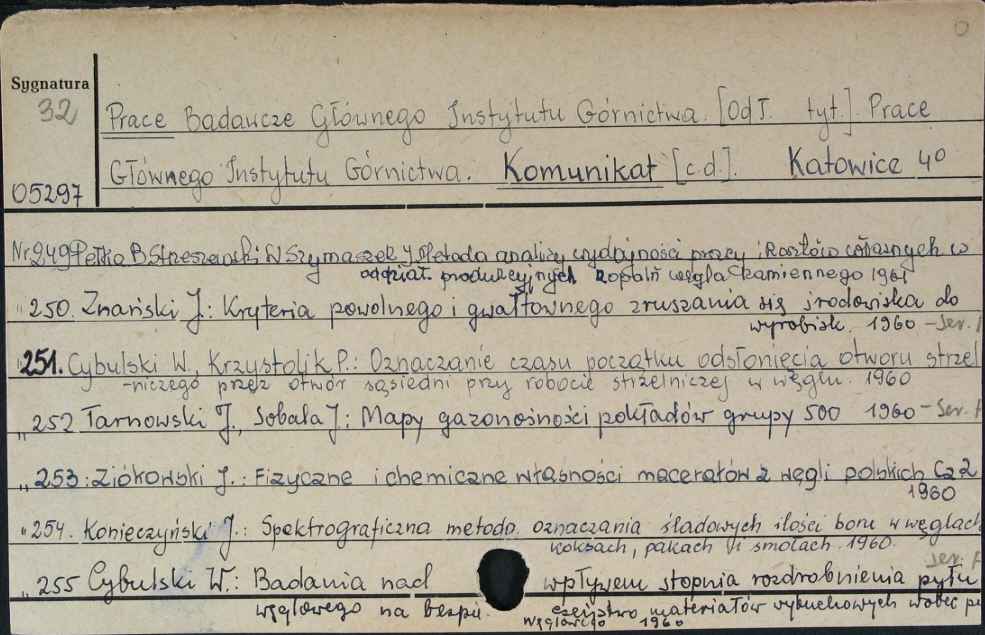 0
Sygnatura
32
Prace Badawcze Głównego Instytutu Górnictwa. [Od T. tyt.]. Prace
Głównego Instytutu Górnictwa. Komunikat [c.d.]. Katowice 4°
05297
Nr 249 Pełka B Streszewski W Szymaszek J Metoda analizy wydajności pracy i kosztów własnych w
oddział. produkcyjnych kopalń węgla kamiennego 1961
" 250. Znański J.: Kryteria powolnego i gwałtownego zruszania się środowiska do
wyrobisk. 1960 - Ser. A
" 251. Cybulski W., Krzystolik P.: Oznaczanie czasu początku odsłonięcia otworu strzel
-niczego przez otwór sąsiedni przy robocie strzelniczej w węglu. 1960
" 252 Tarnowski J., Sobala J.: Mapy gazonośności pokładów grupy 500 1960 - Ser. A
" 253: Ziółkowski J.: Fizyczne i chemiczne własności macerałów z węgli polskich Cz 2
1960
" 254. Konieczyński J.: Spektrograficzna metoda oznaczania śladowych ilości boru w węglach
koksach, pakach i smołach. 1960.
Ser. A
" 255 Cybulski W.: Badania nad wpływem stopnia rozdrobnienia pyłu
węglowego na bezpie. czeństwo materiałów wybuchowych wobec
węglowego 1960